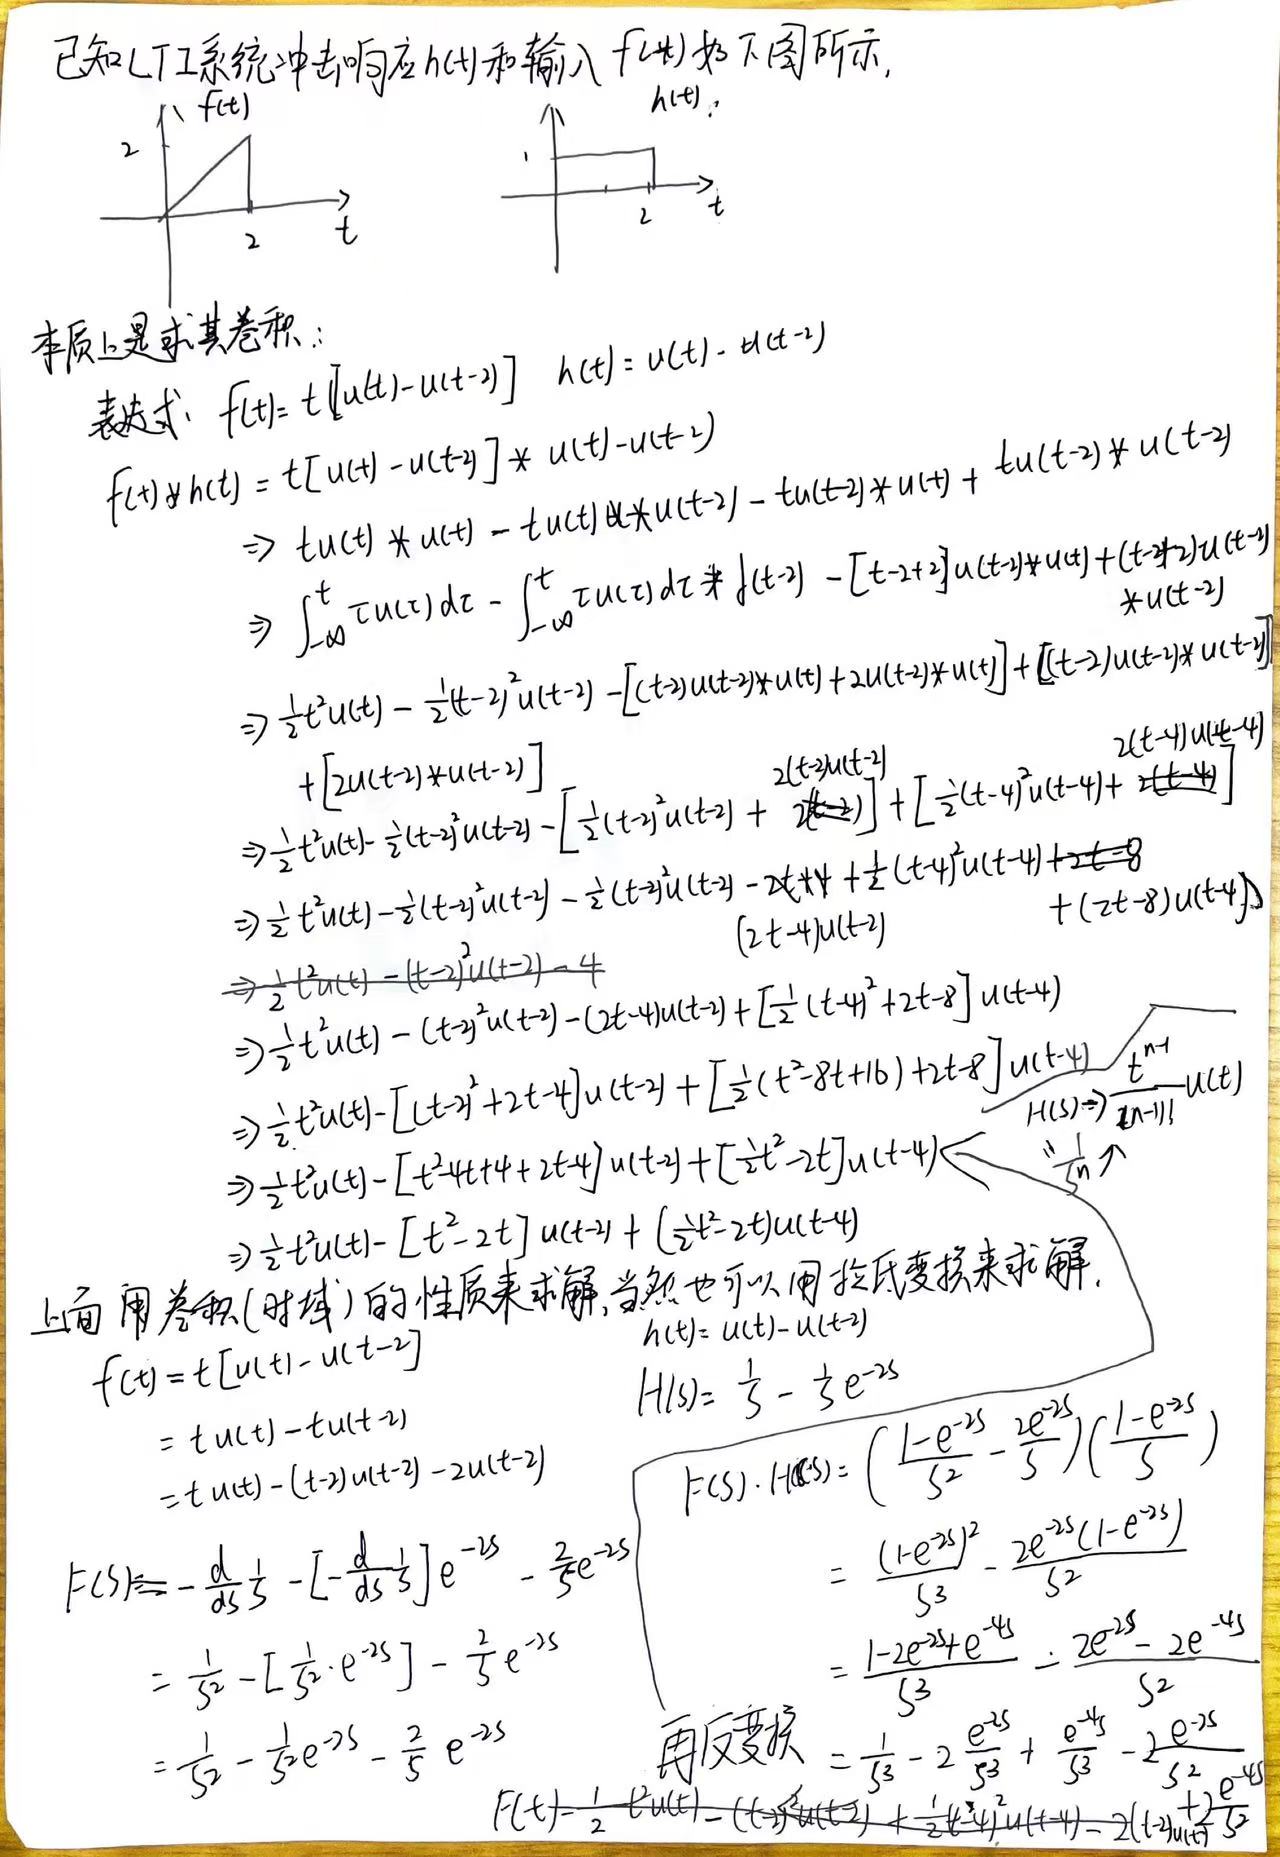 已知LTI系统冲击响应h(t)和输入f(t)如下图所示.
f(t)
2
2
t
h(t).
1
2
t
本质上是求其卷积:
表达式: f(t)=t[u(t)-u(t-2)] h(t)=u(t)-u(t-2)
f(t)*h(t)=t[u(t)-u(t-2)]*u(t)-u(t-2)
⇒ tu(t)*u(t)-tu(t)*u(t-2)-tu(t-2)*u(t)+tu(t-2)*u(t-2)
⇒ ∫_{-∞}^{t} τu(τ)dτ-∫_{-∞}^{t} τu(τ)dτ*δ(t-2)-[t-2+2]u(t-2)*u(t)+(t-2+2)u(t-2)
*u(t-2)
⇒ ½t²u(t)-½(t-2)²u(t-2)-[(t-2)u(t-2)*u(t)+2u(t-2)*u(t)]+[(t-2)u(t-2)*u(t-2)]
+[2u(t-2)*u(t-2)]
⇒ ½t²u(t)-½(t-2)²u(t-2)-[½(t-2)²u(t-2)+2(t-2)u(t-2)]+[½(t-4)²u(t-4)+2(t-4)u(t-4)]
⇒ ½t²u(t)-½(t-2)²u(t-2)-½(t-2)²u(t-2)-(2t-4)u(t-2)+½(t-4)²u(t-4)+(2t-8)u(t-4)
⇒ ½t²u(t)-(t-2)²u(t-2)-4
⇒ ½t²u(t)-(t-2)²u(t-2)-(2t-4)u(t-2)+[½(t-4)²+2t-8]u(t-4)
⇒ ½t²u(t)-[(t-2)²+2t-4]u(t-2)+[½(t²-8t+16)+2t-8]u(t-4)
H(s)⇒ t^{n-1}/(n-1)! u(t)
1/s^n ↑
⇒ ½t²u(t)-[t²-4t+4+2t-4]u(t-2)+[½t²-2t]u(t-4)
⇒ ½t²u(t)-[t²-2t]u(t-2)+(½t²-2t)u(t-4)
上面用卷积(时域)的性质来求解,当然也可以用拉氏变换来求解.
f(t)=t[u(t)-u(t-2]
=tu(t)-tu(t-2)
=tu(t)-(t-2)u(t-2)-2u(t-2)
F(s)=-d/ds 1/s-[-d/ds 1/s]e^{-2s}-2/s e^{-2s}
=1/s²-[1/s²·e^{-2s}]-2/s e^{-2s}
=1/s²-1/s² e^{-2s}-2/s e^{-2s}
h(t)=u(t)-u(t-2)
H(s)=1/s-1/s e^{-2s}
F(s)·H(s)=((1-e^{-2s})/s²-2e^{-2s}/s)((1-e^{-2s})/s)
=(1-e^{-2s})²/s³-2e^{-2s}(1-e^{-2s})/s²
=(1-2e^{-2s}+e^{-4s})/s³-(2e^{-2s}-2e^{-4s})/s²
再反变换 =1/s³-2e^{-2s}/s³+e^{-4s}/s³-2e^{-2s}/s²+2e^{-4s}/s²
F(t)=½t²u(t)-(t-2)²u(t-2)+½(t-4)²u(t-4)-2(t-2)u(t-2)